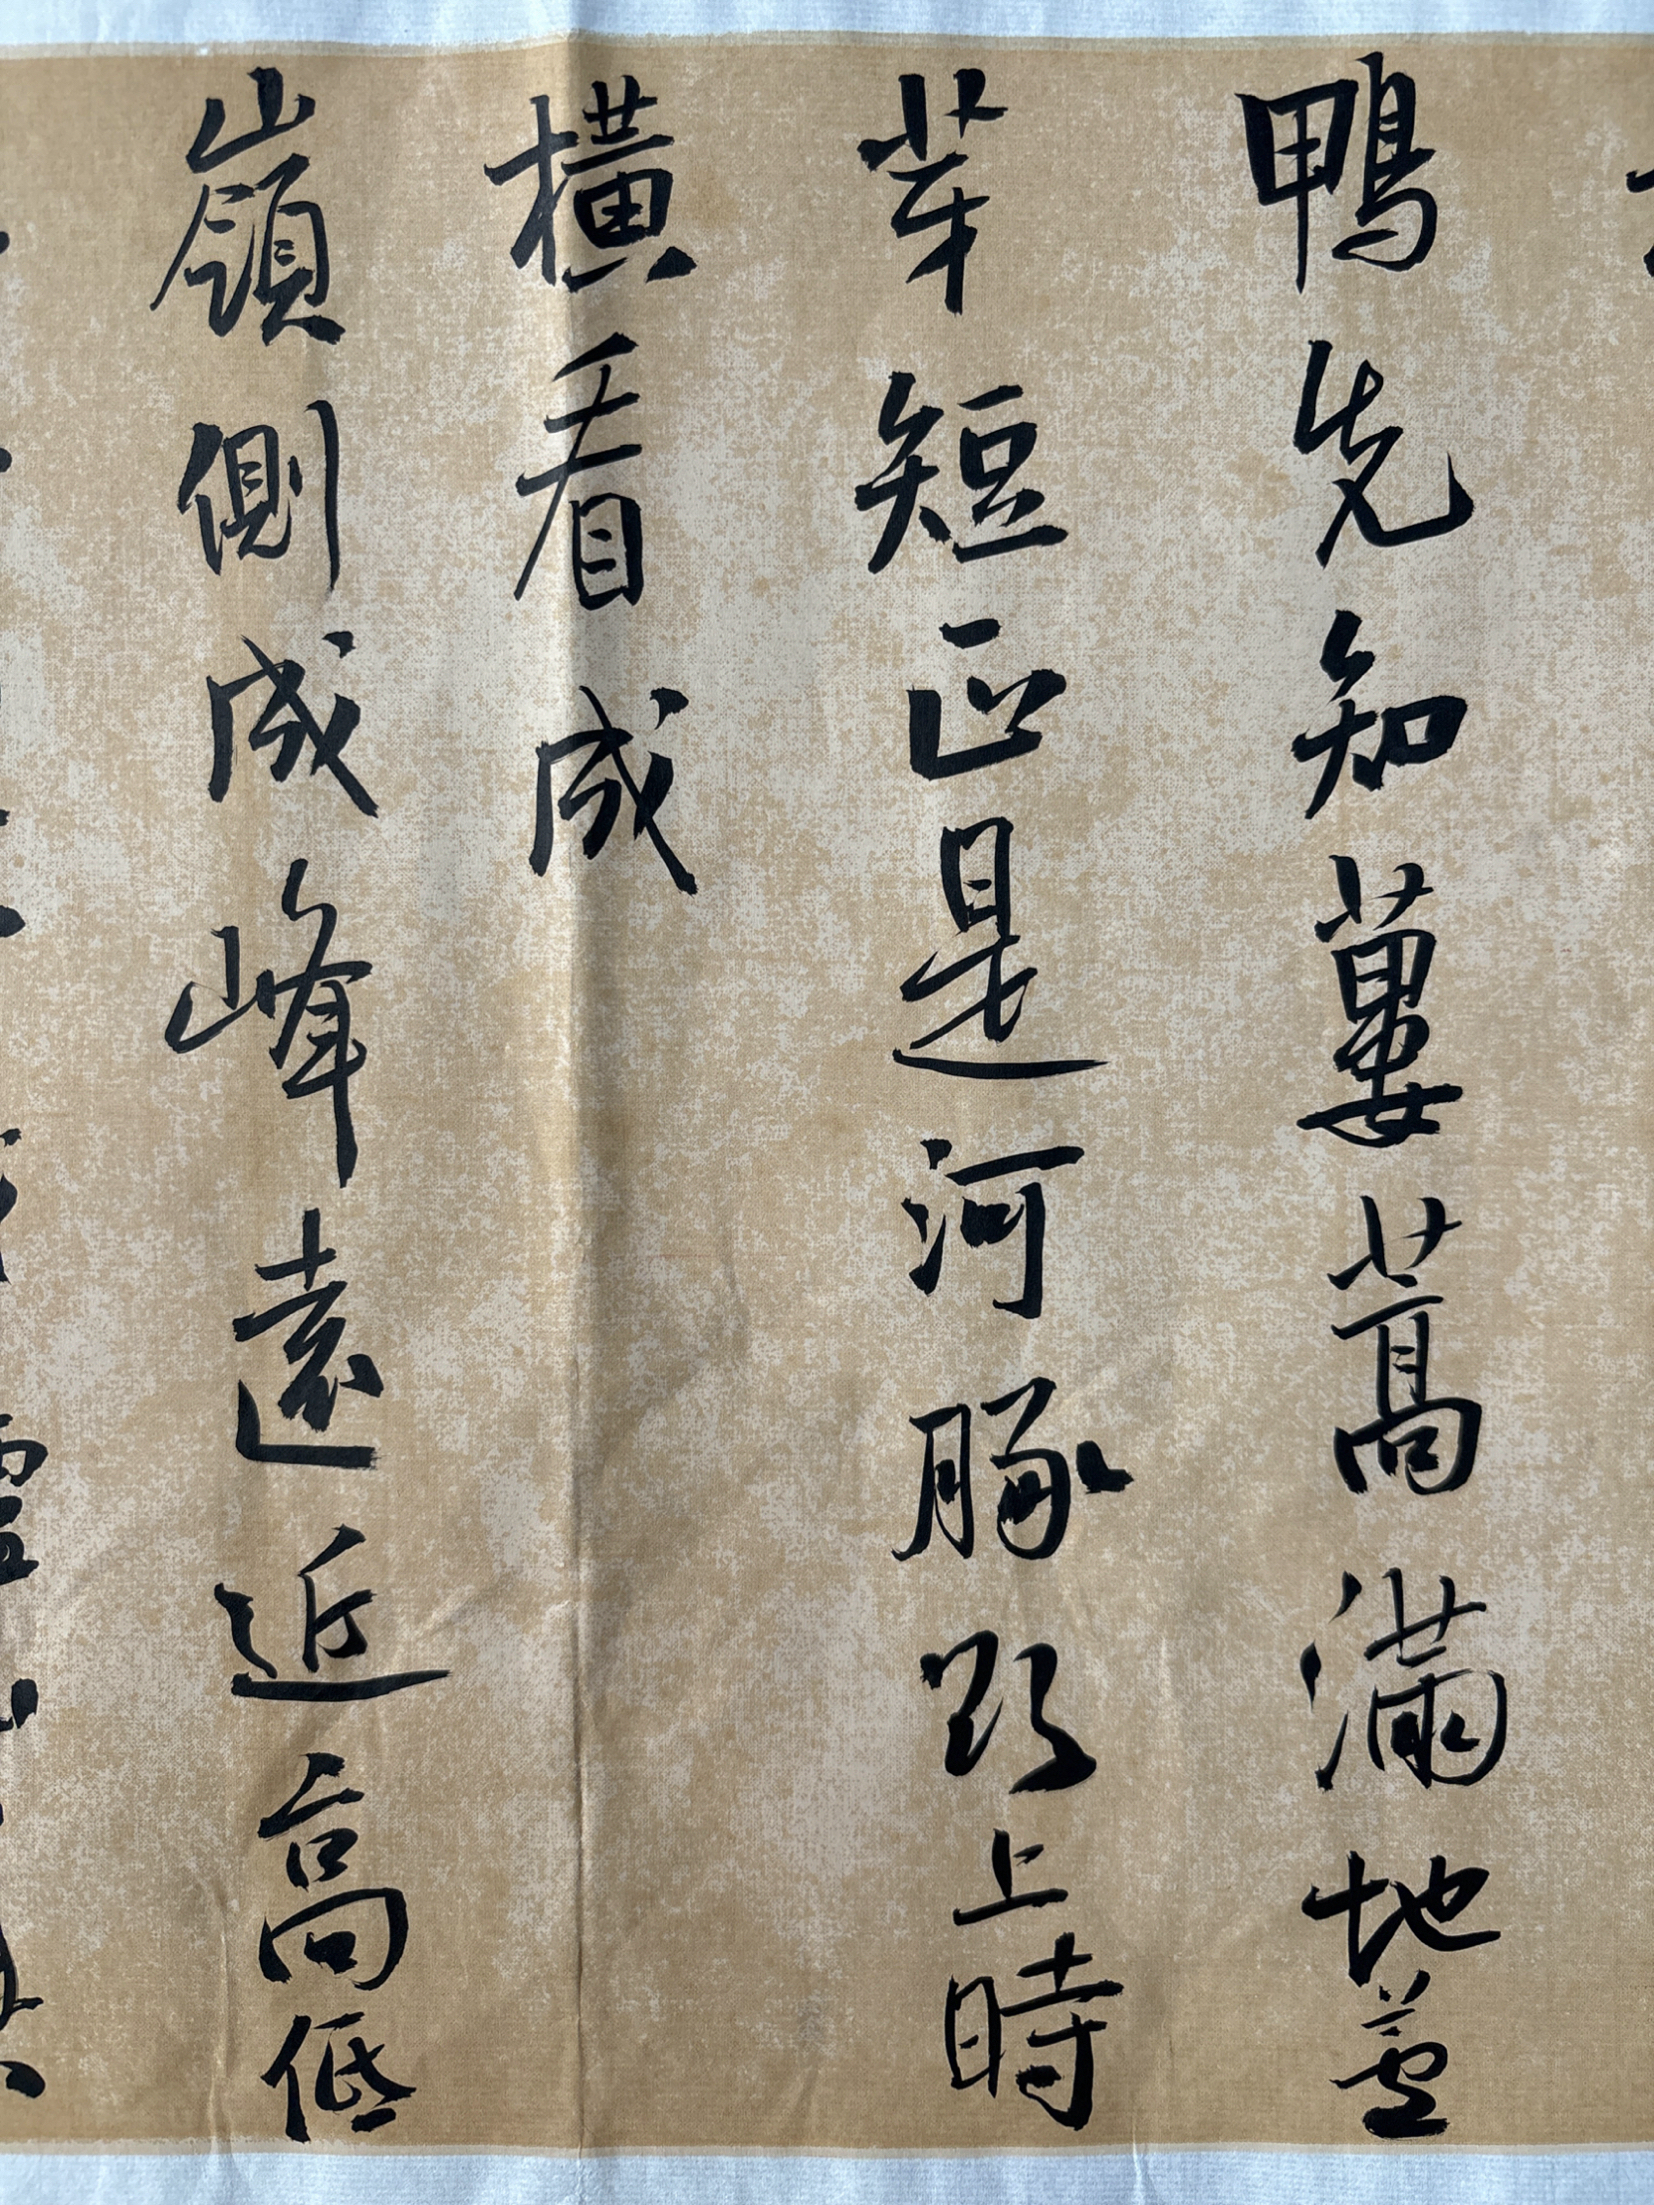 鴨先知蔞蒿滿地蘆
芽短正是河豚欲上時
橫看成
嶺側成峰遠近高低